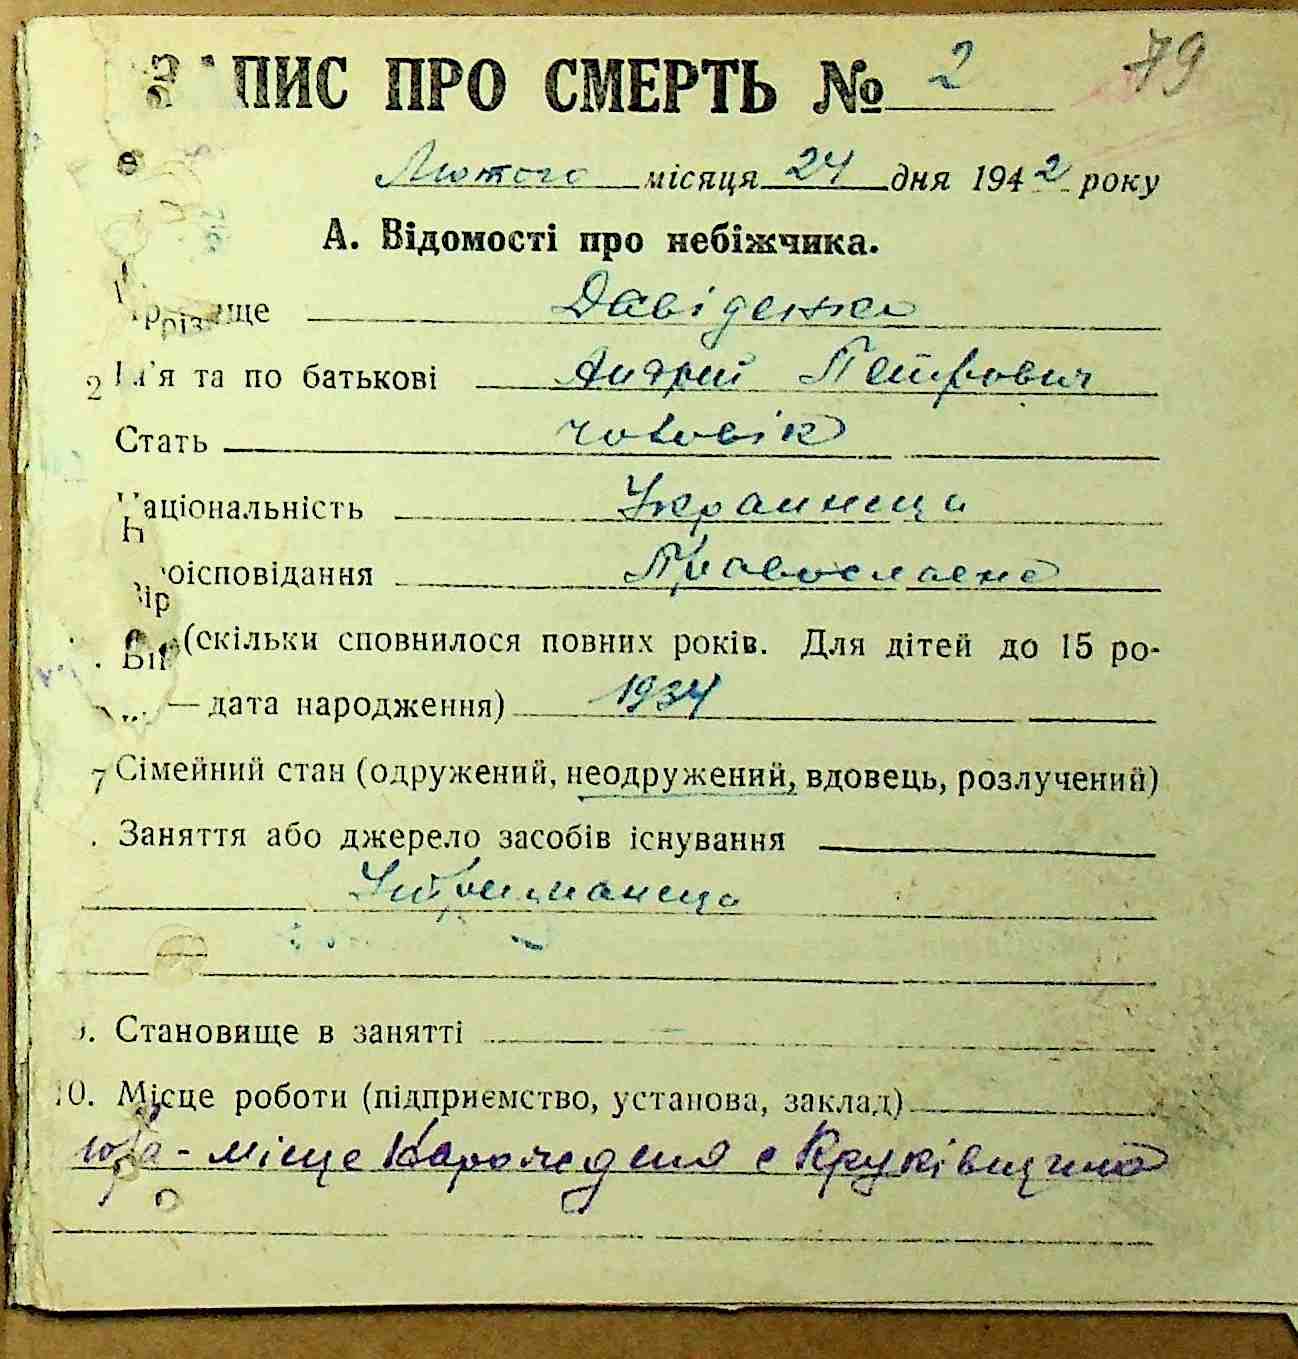 ПИС ПРО СМЕРТЬ № 2 79
Лютого місяця 24 дня 1942 року
А. Відомості про небіжчика.
Давіденко
2 Ім'я та по батькові Андрей Петрович
Стать чоловік
Національність Украинець
Віроісповідання Православне
Вік (скільки сповнилося повних років. Для дітей до 15 ро-
— дата народження) 1934
7 Сімейний стан (одружений, неодружений, вдовець, розлучений)
. Заняття або джерело засобів існування
Утриманець
9. Становище в занятті
10. Місце роботи (підприємство, установа, заклад)
10а - місце народження с Круківщина